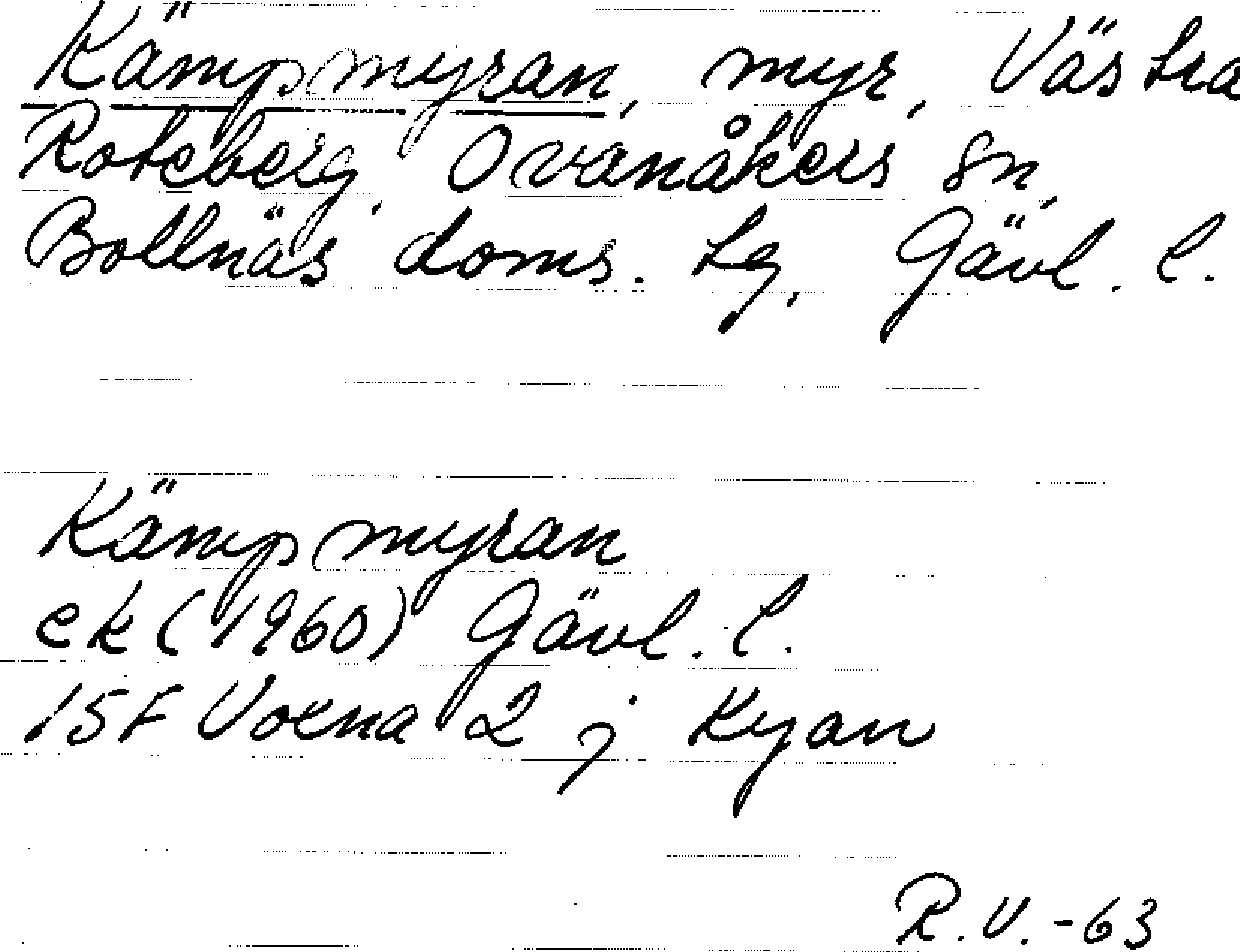 Kämpmyran, myr, Västra
Roteberg, Ovanåkers sn,
Bollnäs doms. tg, Gävl. l.
Kämpmyran
ek (1960) Gävl. l.
15F Voxna 2 j Kyan
R.V.-63